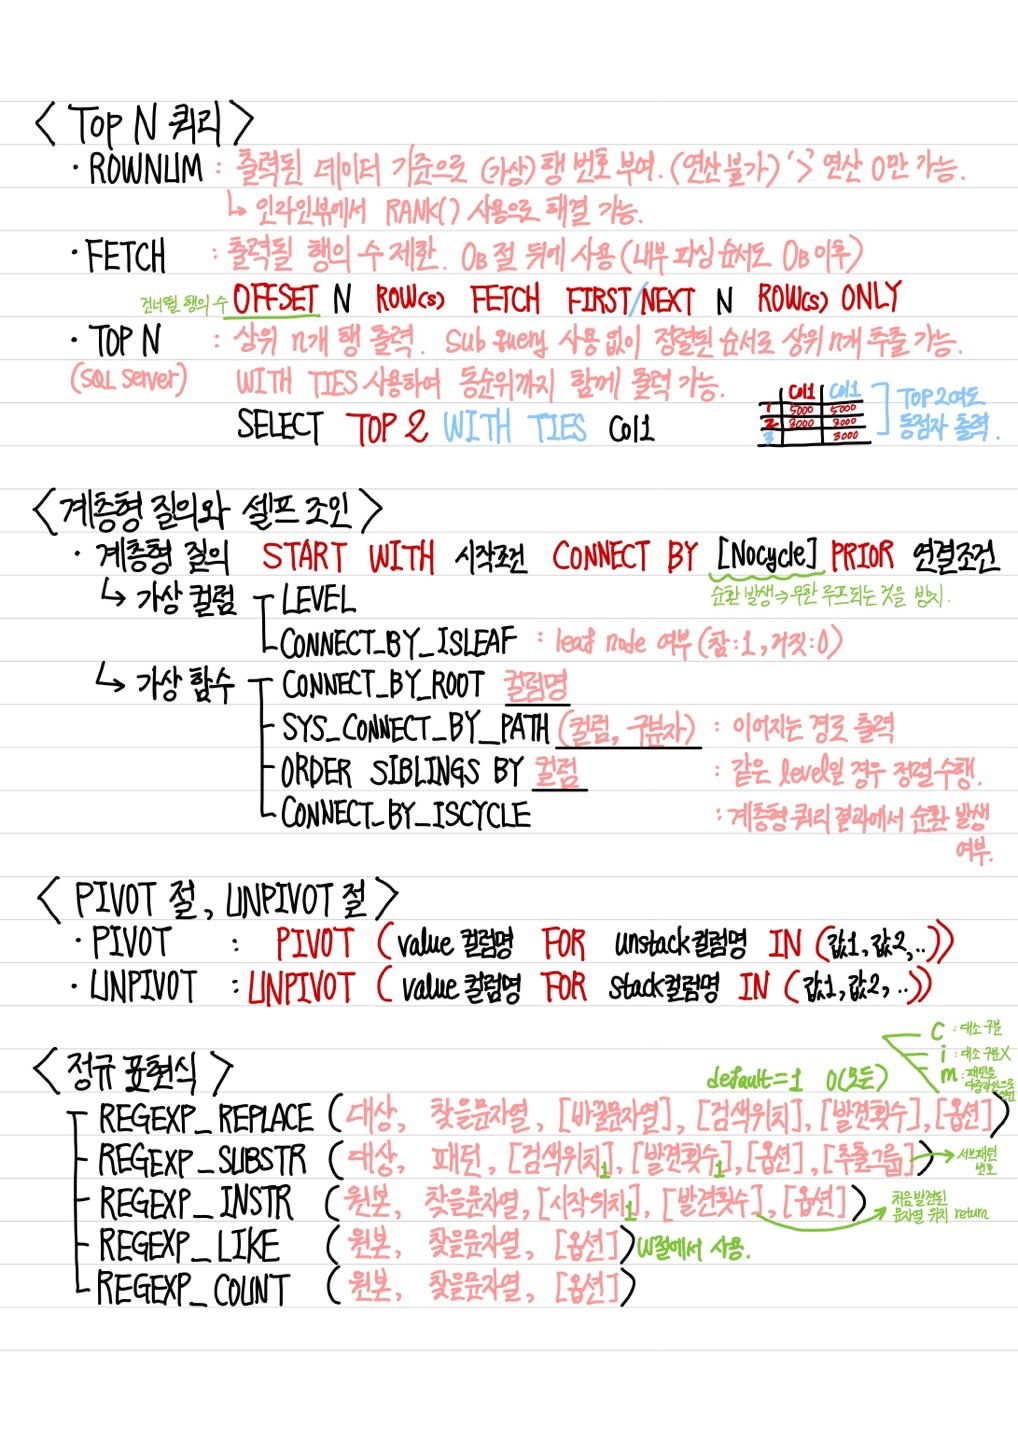 < Top N 쿼리 >
· ROWNUM : 출력된 데이터 기준으로 (가상) 행 번호 부여. (연산불가) '>' 연산 0만 가능.
↳ 인라인뷰에서 RANK() 사용으로 해결 가능.
· FETCH : 출력될 행의 수 제한. OB 절 뒤에 사용 (내부 파싱 순서도 OB 이후)
건너뛸 행의 수 OFFSET N ROW(S) FETCH FIRST/NEXT N ROW(S) ONLY
· TOP N : 상위 n개 행 출력. Sub query 사용 없이 정렬된 순서로 상위 n개 추출 가능.
(SQL Server) WITH TIES 사용하여 동순위까지 함께 출력 가능.
SELECT TOP 2 WITH TIES Col1
Col1 Col1
1 5000 5000
2 3000 3000
3 3000
TOP 2여도
동점자 출력.
< 계층형 질의와 셀프 조인 >
· 계층형 질의 START WITH 시작조건 CONNECT BY [Nocycle] PRIOR 연결조건
순환 발생 → 무한 루프되는 것을 방지.
↳ 가상 컬럼 LEVEL
CONNECT_BY_ISLEAF : leaf node 여부 (참:1, 거짓:0)
↳ 가상 함수 CONNECT_BY_ROOT 컬럼명
SYS_CONNECT_BY_PATH (컬럼, 구분자) : 이어지는 경로 출력
ORDER SIBLINGS BY 컬럼 : 같은 level일 경우 정렬 수행.
CONNECT_BY_ISCYCLE : 계층형 쿼리 결과에서 순환 발생
여부.
< PIVOT 절, UNPIVOT 절 >
· PIVOT : PIVOT (value 컬럼명 FOR unstack컬럼명 IN (값1, 값2, ..))
· UNPIVOT : UNPIVOT (value 컬럼명 FOR stack컬럼명 IN (값1, 값2, ..))
< 정규 표현식 >
c : 대소 구분
i : 대소 구분X
m : 패턴을
default=1 0(모든)
REGEXP_REPLACE (대상, 찾을문자열, [바꿀문자열], [검색위치], [발견횟수], [옵션])
REGEXP_SUBSTR (대상, 패턴, [검색위치]1, [발견횟수]1, [옵션], [추출그룹]) → 서브패턴
번호
REGEXP_INSTR (원본, 찾을문자열, [시작위치]1, [발견횟수], [옵션]) 처음 발견된
문자열 위치 return
REGEXP_LIKE (원본, 찾을문자열, [옵션]) W절에서 사용.
REGEXP_COUNT (원본, 찾을문자열, [옵션])